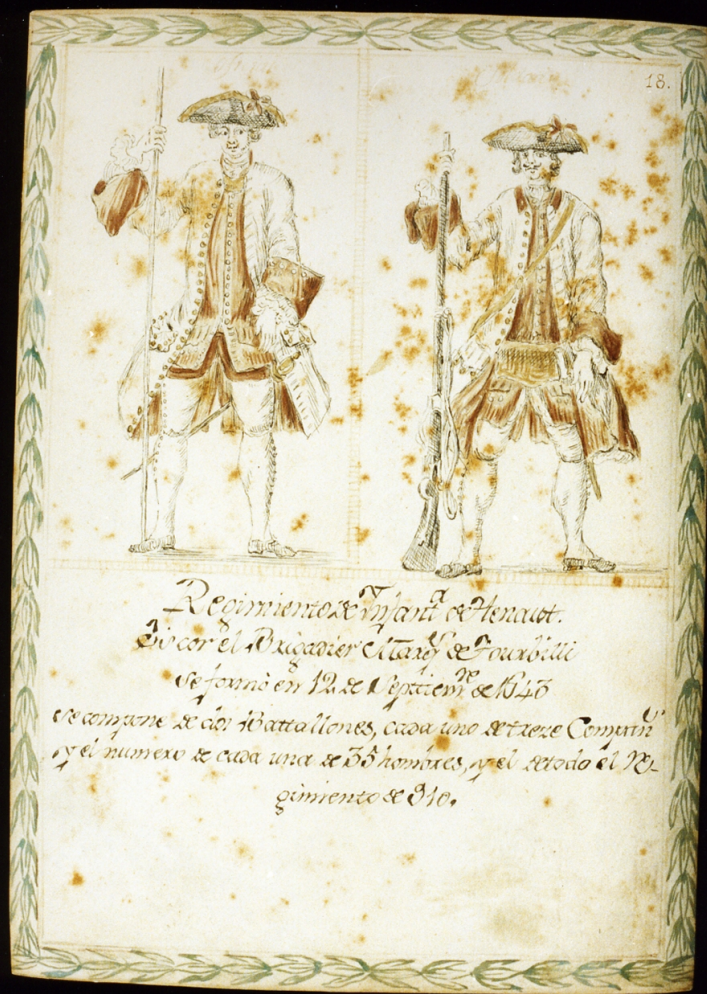 18.
Regimiento de Ynfant.ª de Henaut.
Su cor.l el Brigadier Marq.s de Fourbilli
se formò en 12 de Septtiem.re de 1543
se compone de dos Battallones, cada uno de treze Compañ.s
y el numero de cada una de 35 hombres, y el de todo el Re-
gimiento de 910.